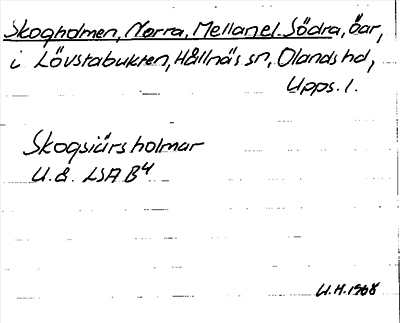 Skogholmen, Norra, Mellanel. Södra, öar,
i Lövstabukten, Hållnäs sn, Olands hd,
Upps. l.
Skogsiärsholmar
U.å. LSA B4
U.H. 1968